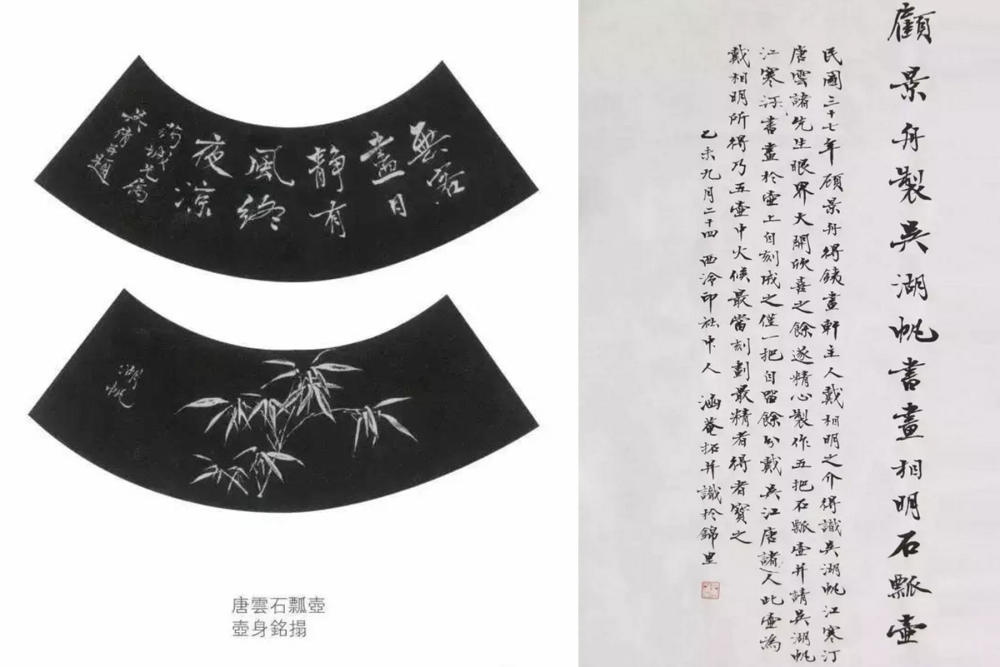 無客
盡日
靜有
風終
夜涼
药城兄屬
吳倩並題
湖帆
唐雲石瓢壺
壺身銘搨
顧景舟製吳湖帆書畫相明石瓢壺
民國三十七年顧景舟得銕畫軒主人戴相明之介得識吳湖帆江寒汀
唐雲諸先生眼界大開欣喜之餘遂精心製作五把石瓢壺并請吳湖帆
江寒汀書畫於壺上自刻成之僅一把自留餘分戴吳江唐諸人此壺為
戴相明所得乃五壺中火候最當刻劃最精者得者寶之
乙未九月二十四 西泠印社中人 涵菴拓并識於錦里